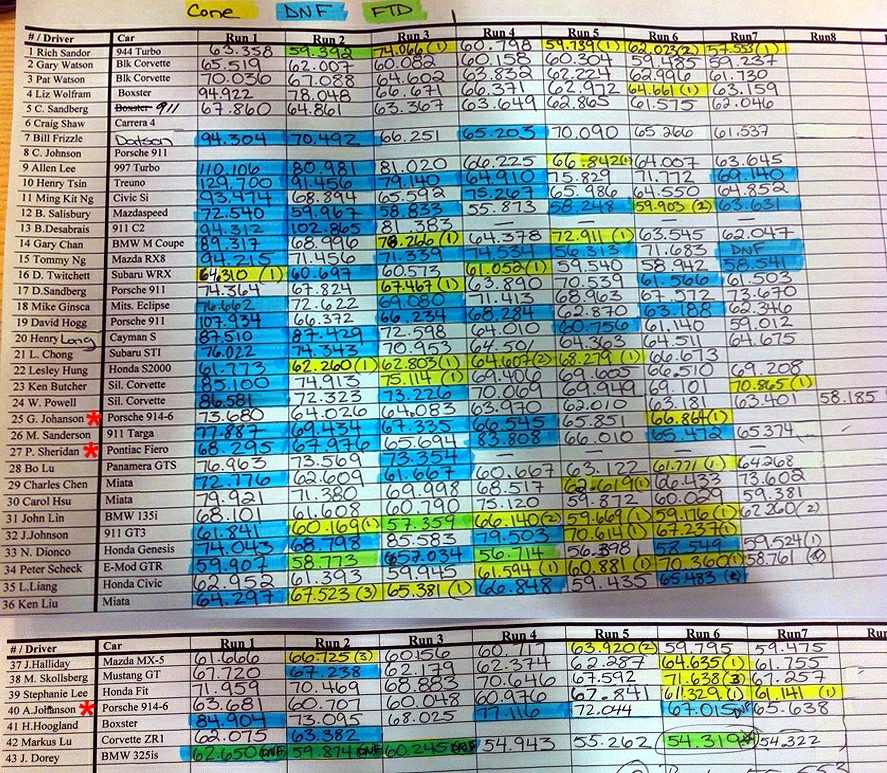 Cone DNF FTD
# / Driver Car Run 1 Run 2 Run 3 Run 4 Run 5 Run 6 Run7 Run8
1 Rich Sandor 944 Turbo 63.358 59.392 74.066 (1) 60.798 59.739 (1) 62.023(2) 57.553(1)
2 Gary Watson Blk Corvette 65.519 62.007 60.082 60.158 60.304 59.485 59.237
3 Pat Watson Blk Corvette 70.036 67.088 64.602 63.832 62.224 62.996 61.730
4 Liz Wolfram Boxster 94.922 78.048 66.671 66.371 62.972 64.661 (1) 63.159
5 C. Sandberg Boxster 911 67.860 64.861 63.367 63.649 62.865 61.575 62.046
6 Craig Shaw Carrera 4
7 Bill Frizzle Datson 94.304 70.492 66.251 65.203 70.090 65.266 61.537
8 C. Johnson Porsche 911
9 Allen Lee 997 Turbo 110.106 80.981 81.020 66.225 66.842(1) 64.007 63.645
10 Henry Tsin Treuno 129.700 91.456 79.140 64.910 75.829 71.772 69.140
11 Ming Kit Ng Civic Si 93.474 68.894 65.592 75.267 65.986 64.550 64.852
12 B. Salisbury Mazdaspeed 72.540 59.967 58.832 55.873 58.248 59.903 (2) 63.631
13 B.Desabrais 911 C2 94.312 102.865 81.383 — — — —
14 Gary Chan BMW M Coupe 89.317 68.996 78.266 (1) 64.378 72.911 (1) 63.545 62.047
15 Tommy Ng Mazda RX8 94.215 71.456 71.339 74.534 56.313 71.683 DNF
16 D. Twitchett Subaru WRX 64.310 (1) 60.697 60.573 61.052(1) 59.540 58.942 58.541
17 D.Sandberg Porsche 911 74.364 67.824 67.467(1) 63.890 70.539 61.566 61.503
18 Mike Ginsca Mits. Eclipse 76.662 72.622 69.080 71.413 68.963 67.572 73.670
19 David Hogg Porsche 911 107.934 66.372 66.234 68.284 62.870 63.188 62.346
20 Henry Long Cayman S 87.510 87.429 72.598 64.010 60.756 61.140 59.012
21 L. Chong Subaru STI 76.022 74.343 70.953 64.501 64.363 64.511 64.675
22 Lesley Hung Honda S2000 61.773 62.260(1) 62.803(1) 64.607(2) 68.279 (1) 66.673
23 Ken Butcher Sil. Corvette 85.100 74.913 75.114 (1) 69.406 69.605 66.510 69.208
24 W. Powell Sil. Corvette 86.581 72.323 73.226 70.069 69.949 69.101 70.865(1)
25 G. Johanson * Porsche 914-6 73.680 64.026 64.083 63.970 62.010 63.181 63.401 58.185
26 M. Sanderson 911 Targa 77.887 69.434 67.335 66.545 65.851 66.864(1)
27 P. Sheridan * Pontiac Fiero 68.295 67.976 65.694 83.808 66.010 65.472 65.374
28 Bo Lu Panamera GTS 76.963 73.569 73.354 — — — —
29 Charles Chen Miata 72.776 62.609 61.667 60.667 63.122 61.771 (1) 64.268
30 Carol Hsu Miata 79.921 71.380 69.998 68.517 62.619(1) 66.433 73.602
31 John Lin BMW 135i 68.101 61.608 60.790 75.120 59.872 60.029 59.381
32 J.Johnson 911 GT3 61.841 60.169(1) 57.359 66.140(2) 59.669(1) 59.176(1) 62.260(2)
33 N. Dionco Honda Genesis 74.043 68.798 85.583 79.503 70.614(1) 67.237(1)
34 Peter Scheck E-Mod GTR 59.907 58.773 57.034 56.714 56.398 58.549 59.524(1)
35 L.Liang Honda Civic 62.952 61.393 59.945 61.594 (1) 60.881 (1) 70.360(1) 58.761
36 Ken Liu Miata 64.297 67.523 (3) 65.381 (1) 66.848 59.435 65.483
# / Driver Car Run 1 Run 2 Run 3 Run 4 Run 5 Run 6 Run7 Run
37 J.Halliday Mazda MX-5 61.666 66.725 (3) 60.156 60.717 63.920(2) 59.795 59.475
38 M. Skollsberg Mustang GT 67.720 67.238 62.179 62.374 62.287 64.635(1) 61.755
39 Stephanie Lee Honda Fit 71.959 70.469 68.883 70.646 67.592 71.638(3) 67.257
40 A.Johanson * Porsche 914-6 63.681 60.707 60.048 60.976 67.841 61.329(1) 61.141 (1)
41 H.Hoogland Boxster 84.904 73.095 68.025 77.116 72.044 67.015 DNF 65.638
42 Markus Lu Corvette ZR1 62.075 63.382 54.943 55.262 54.319 54.322
43 J. Dorey BMW 325is 62.650 DNF 59.874 DNF 60.245 DNF